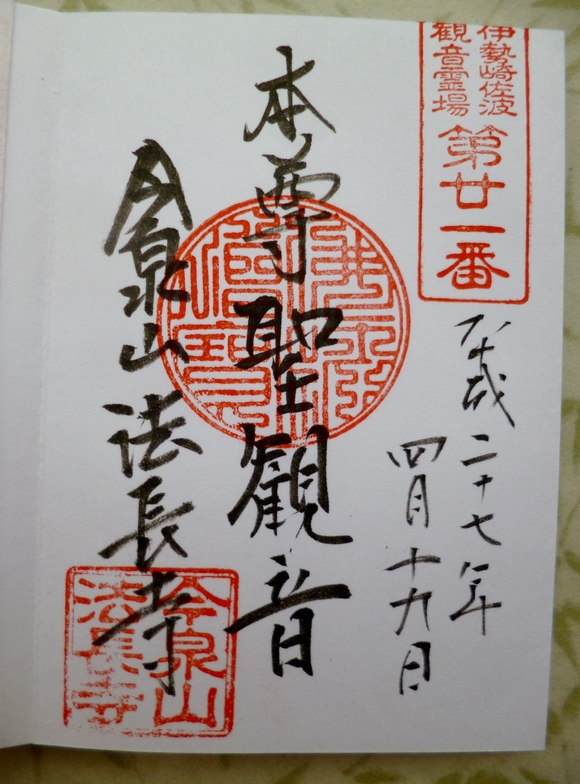 伊勢崎佐波
観音霊場
第廿一番
平成二十七年
四月十九日
本尊聖観音
今泉山法長寺
佛法僧寶
今泉山
法長寺